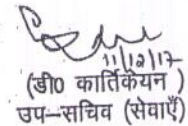 11/12/17
(डी0 कार्तिकेयन)
उप–सचिव (सेवाएँ)